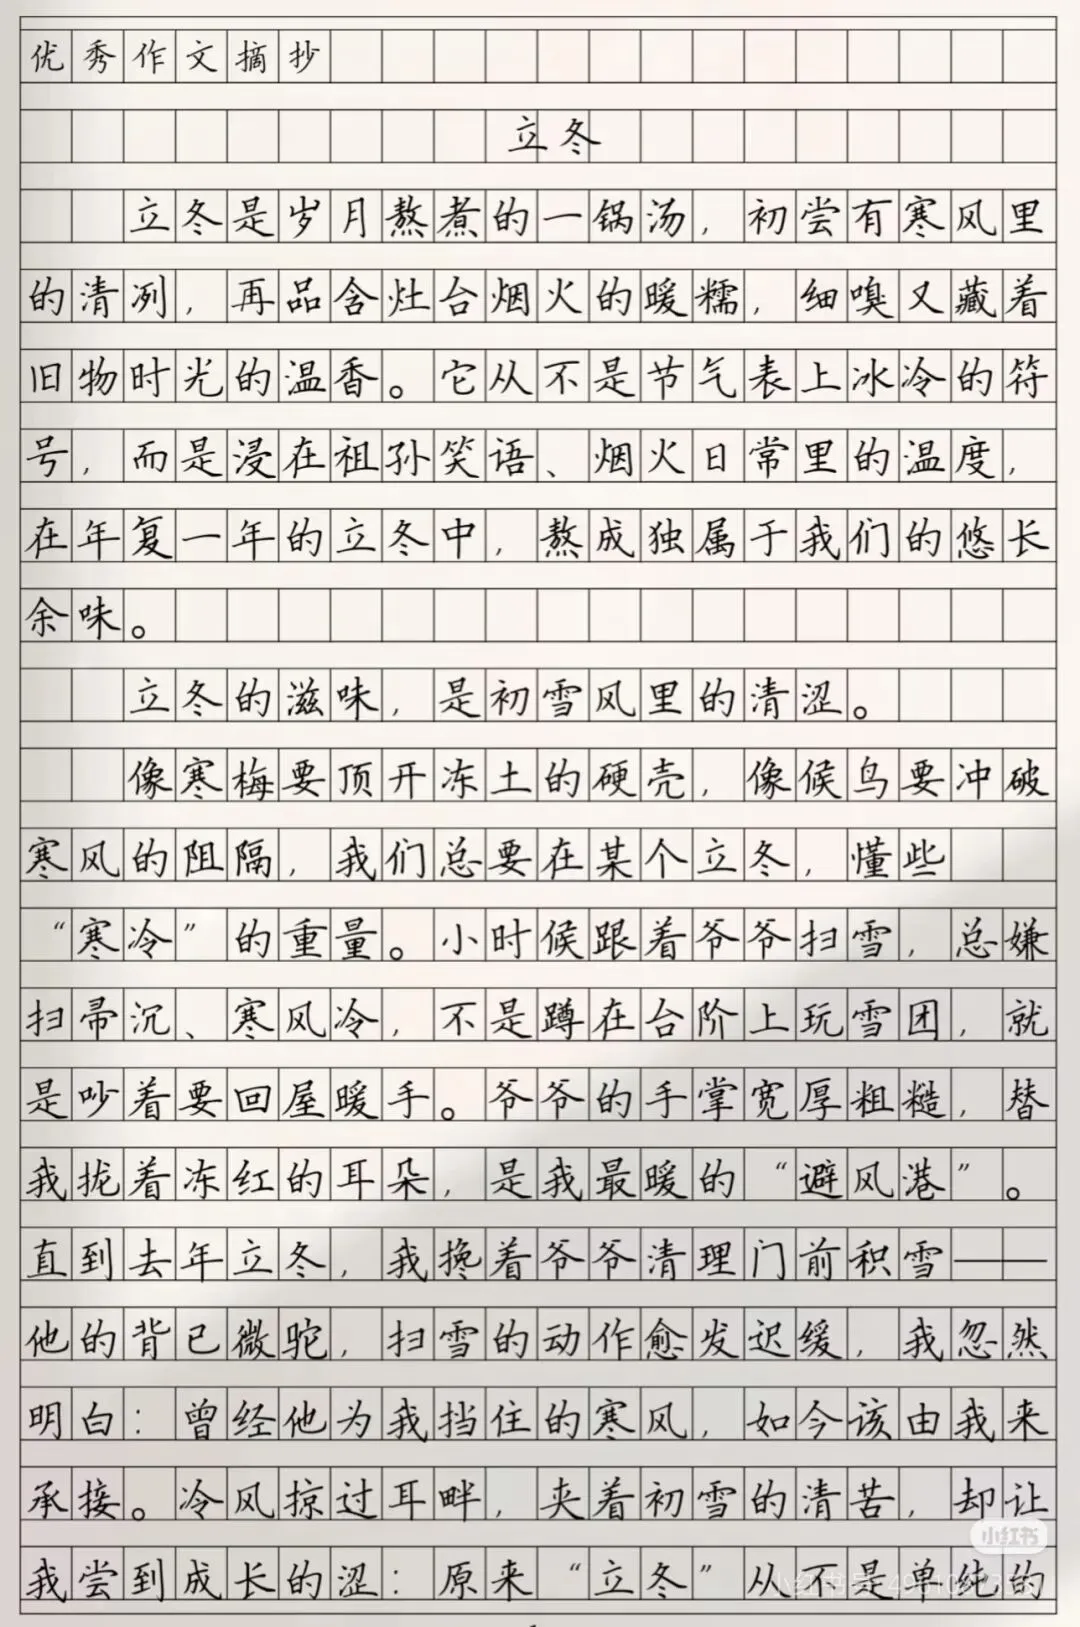 优秀作文摘抄
立冬
立冬是岁月熬煮的一锅汤，初尝有寒风里
的清冽，再品含灶台烟火的暖糯，细嗅又藏着
旧物时光的温香。它从不是节气表上冰冷的符
号，而是浸在祖孙笑语、烟火日常里的温度，
在年复一年的立冬中，熬成独属于我们的悠长
余味。
立冬的滋味，是初雪风里的清涩。
像寒梅要顶开冻土的硬壳，像候鸟要冲破
寒风的阻隔，我们总要在某个立冬，懂些
“寒冷”的重量。小时候跟着爷爷扫雪，总嫌
扫帚沉、寒风冷，不是蹲在台阶上玩雪团，就
是吵着要回屋暖手。爷爷的手掌宽厚粗糙，替
我拢着冻红的耳朵，是我最暖的“避风港”。
直到去年立冬，我搀着爷爷清理门前积雪——
他的背已微驼，扫雪的动作愈发迟缓，我忽然
明白：曾经他为我挡住的寒风，如今该由我来
承接。冷风掠过耳畔，夹着初雪的清苦，却让
小红书
我尝到成长的涩：原来“立冬”从不是单纯的
小红书号